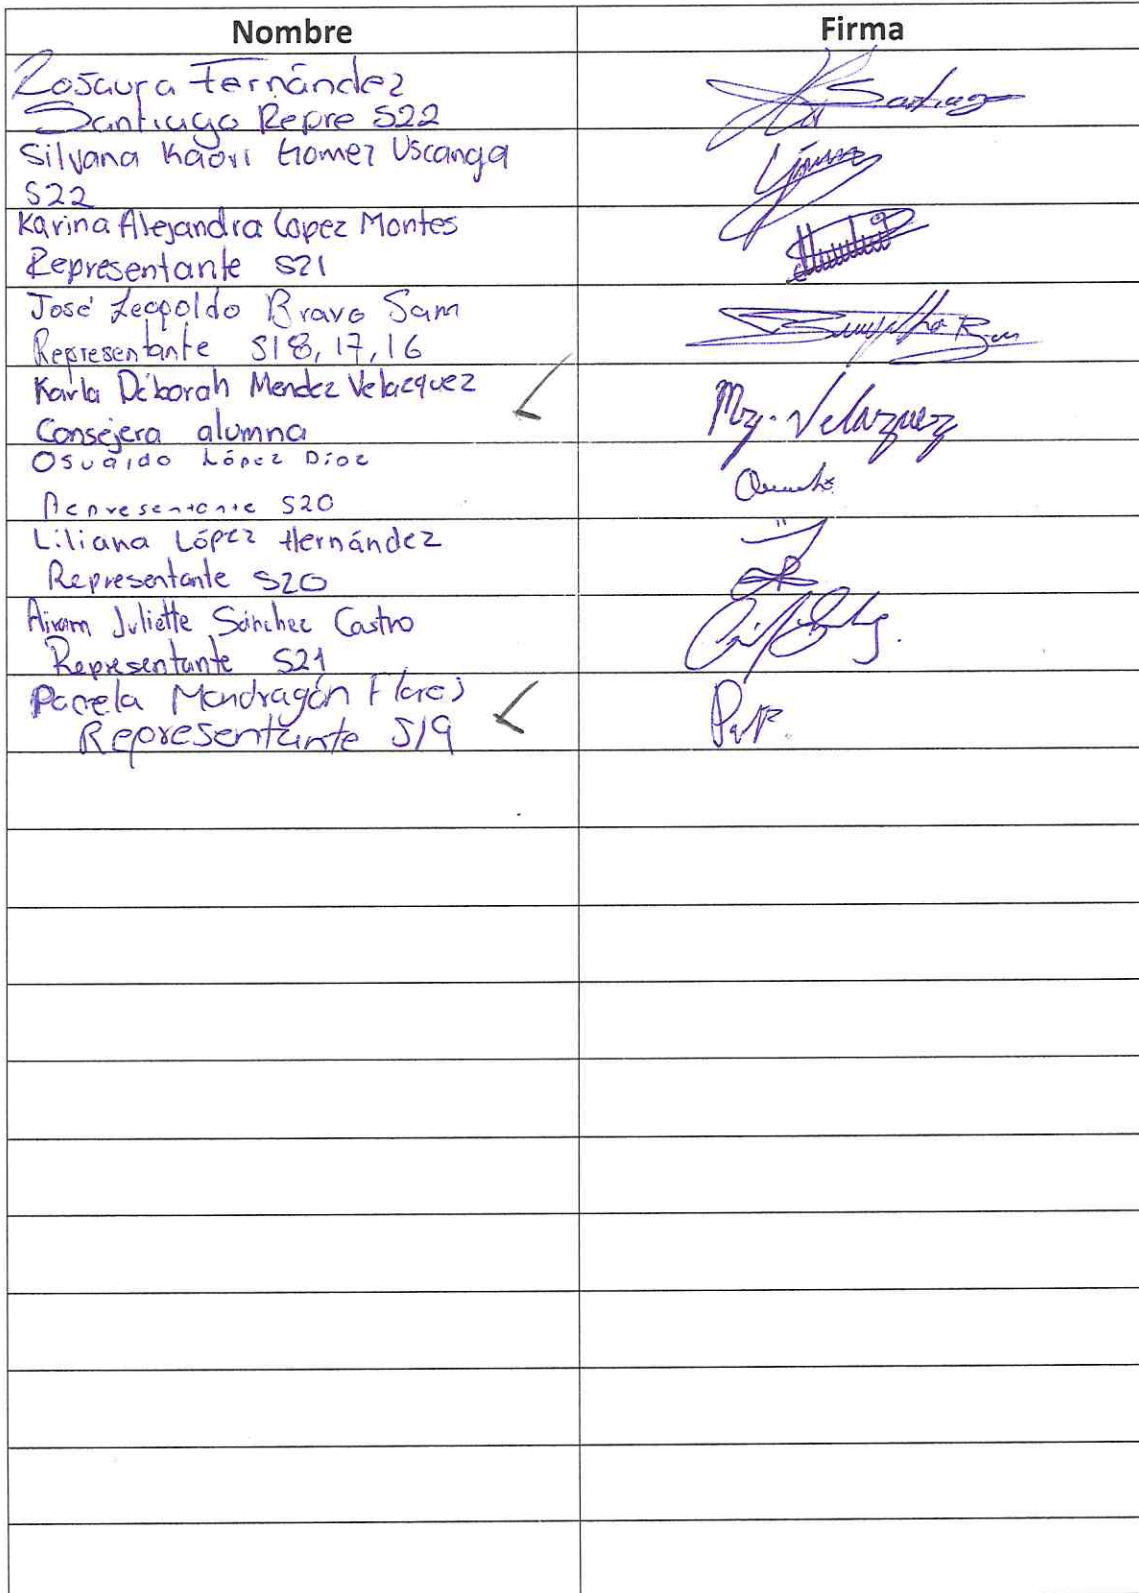 Nombre Firma
Rosaura Fernández
Santiago Repre S22
Santiago
Silvana Kaori Gomez Uscanga
S22
Karina Alejandra Lopez Montes
Representante S21
José Leopoldo Bravo Sam
Representante S18, 17, 16
Karla Déborah Mendez Velazquez
Consejera alumna
Mz. Velazquez
Osvaldo López Díaz
Representante S20
Liliana López Hernández
Representante S20
Airam Juliette Sánchez Castro
Representante S21
Pamela Mondragón Flores
Representante S19